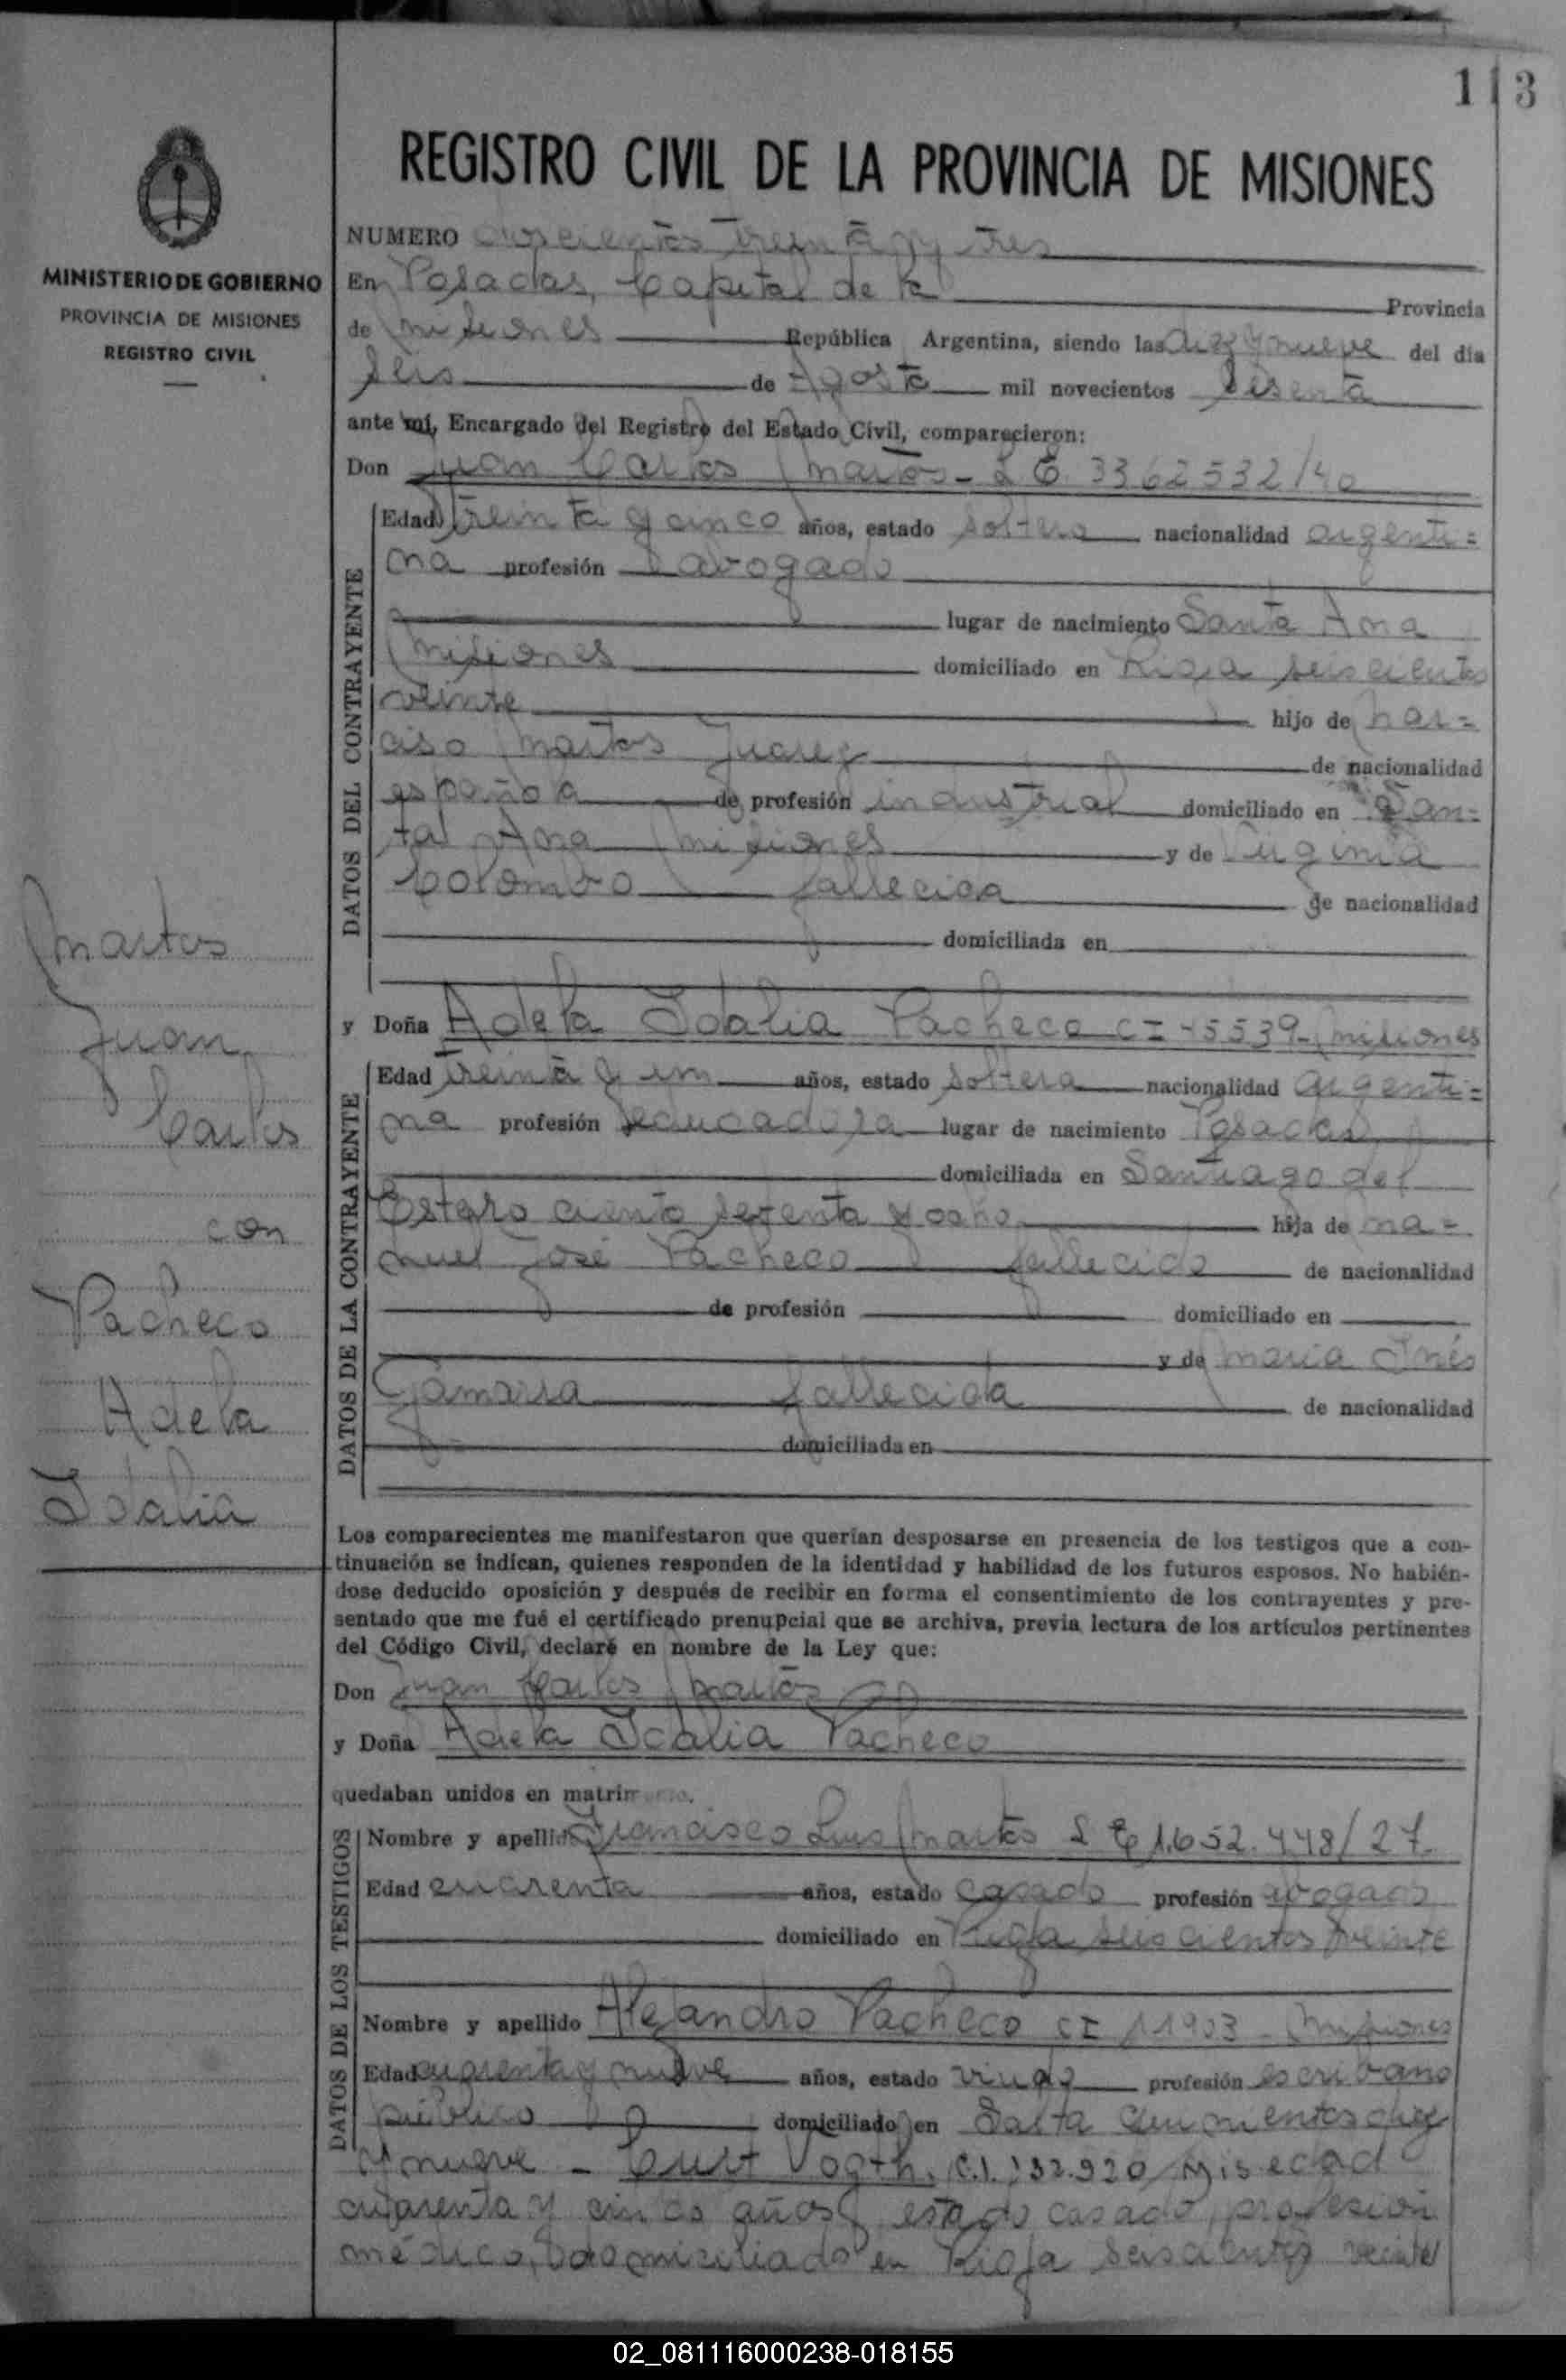 113
REGISTRO CIVIL DE LA PROVINCIA DE MISIONES
MINISTERIO DE GOBIERNO
PROVINCIA DE MISIONES
REGISTRO CIVIL
NUMERO doscientos treinta y tres
En Posadas, Capital de la Provincia
de Misiones República Argentina, siendo las diez y nueve del día
seis de Agosto mil novecientos sesenta
ante mí, Encargado del Registro del Estado Civil, comparecieron:
Don Juan Carlos Martos - L E. 3362532/40
DATOS DEL CONTRAYENTE
Edad treinta y cinco años, estado soltero nacionalidad argenti=
na profesión abogado
lugar de nacimiento Santa Ana
Misiones domiciliado en Rioja seiscientos
veinte hijo de Nar=
ciso Martos Juarez de nacionalidad
española de profesión industrial domiciliado en San=
ta Ana Misiones y de Virginia
Colombo fallecida de nacionalidad
domiciliada en
Martos
Juan
Carlos
con
Pacheco
Adela
Idalia
y Doña Adela Idalia Pacheco CI 45539 - Misiones
DATOS DE LA CONTRAYENTE
Edad treinta y un años, estado soltera nacionalidad argenti=
na profesión educadora lugar de nacimiento Posadas
domiciliada en Santiago del
Estero ciento setenta y ocho hija de Ma=
nuel José Pacheco fallecido de nacionalidad
de profesión domiciliado en
y de Maria Inés
Gamarra fallecida de nacionalidad
domiciliada en
Los comparecientes me manifestaron que querían desposarse en presencia de los testigos que a con-
tinuación se indican, quienes responden de la identidad y habilidad de los futuros esposos. No habién-
dose deducido oposición y después de recibir en forma el consentimiento de los contrayentes y pre-
sentado que me fué el certificado prenupcial que se archiva, previa lectura de los artículos pertinentes
del Código Civil, declaré en nombre de la Ley que:
Don Juan Carlos Martos
y Doña Adela Idalia Pacheco
quedaban unidos en matrimonio.
DATOS DE LOS TESTIGOS
Nombre y apellido Francisco Luis Martos L E 1.652.448/27-
Edad cuarenta años, estado casado profesión abogado
domiciliado en Rioja seiscientos veinte
Nombre y apellido Alejandro Pacheco CI 11903 - Misiones
Edad cuarenta y nueve años, estado viudo profesión escribano
público domiciliado en Salta quinientos diez
y nueve - Curt Vogth. C.I. 132.920 Mis. edad
cuarenta y cinco años, estado casado, profesión
médico, domiciliado en Rioja seiscientos veinte
02_081116000238-018155